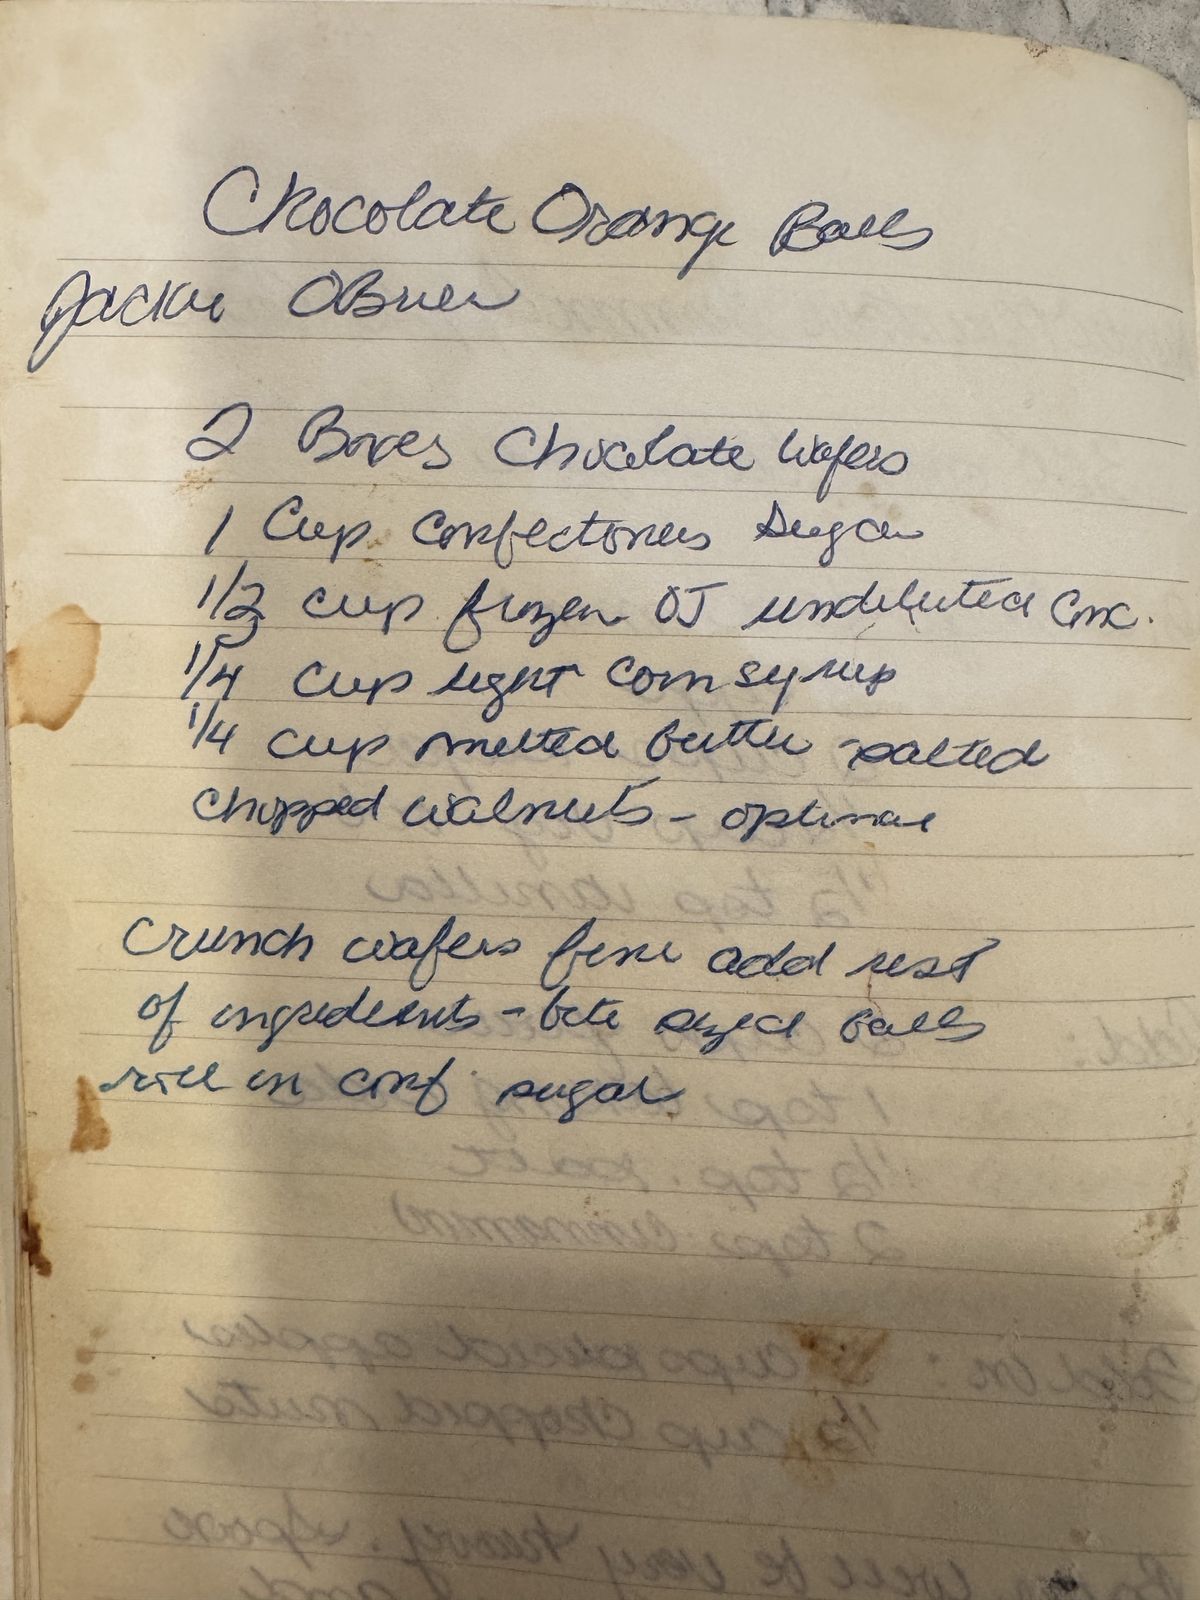 Chocolate Orange Balls
Jackie OBrien
2 Boxes Chocolate Wafers
1 Cup Confectioners Sugar
1/2 cup frozen OJ undiluted Conc.
1/4 cup light corn syrup
1/4 cup melted butter - salted
chopped walnuts - optional
Crunch wafers fine add rest
of ingredients - bite sized balls
roll in conf sugar